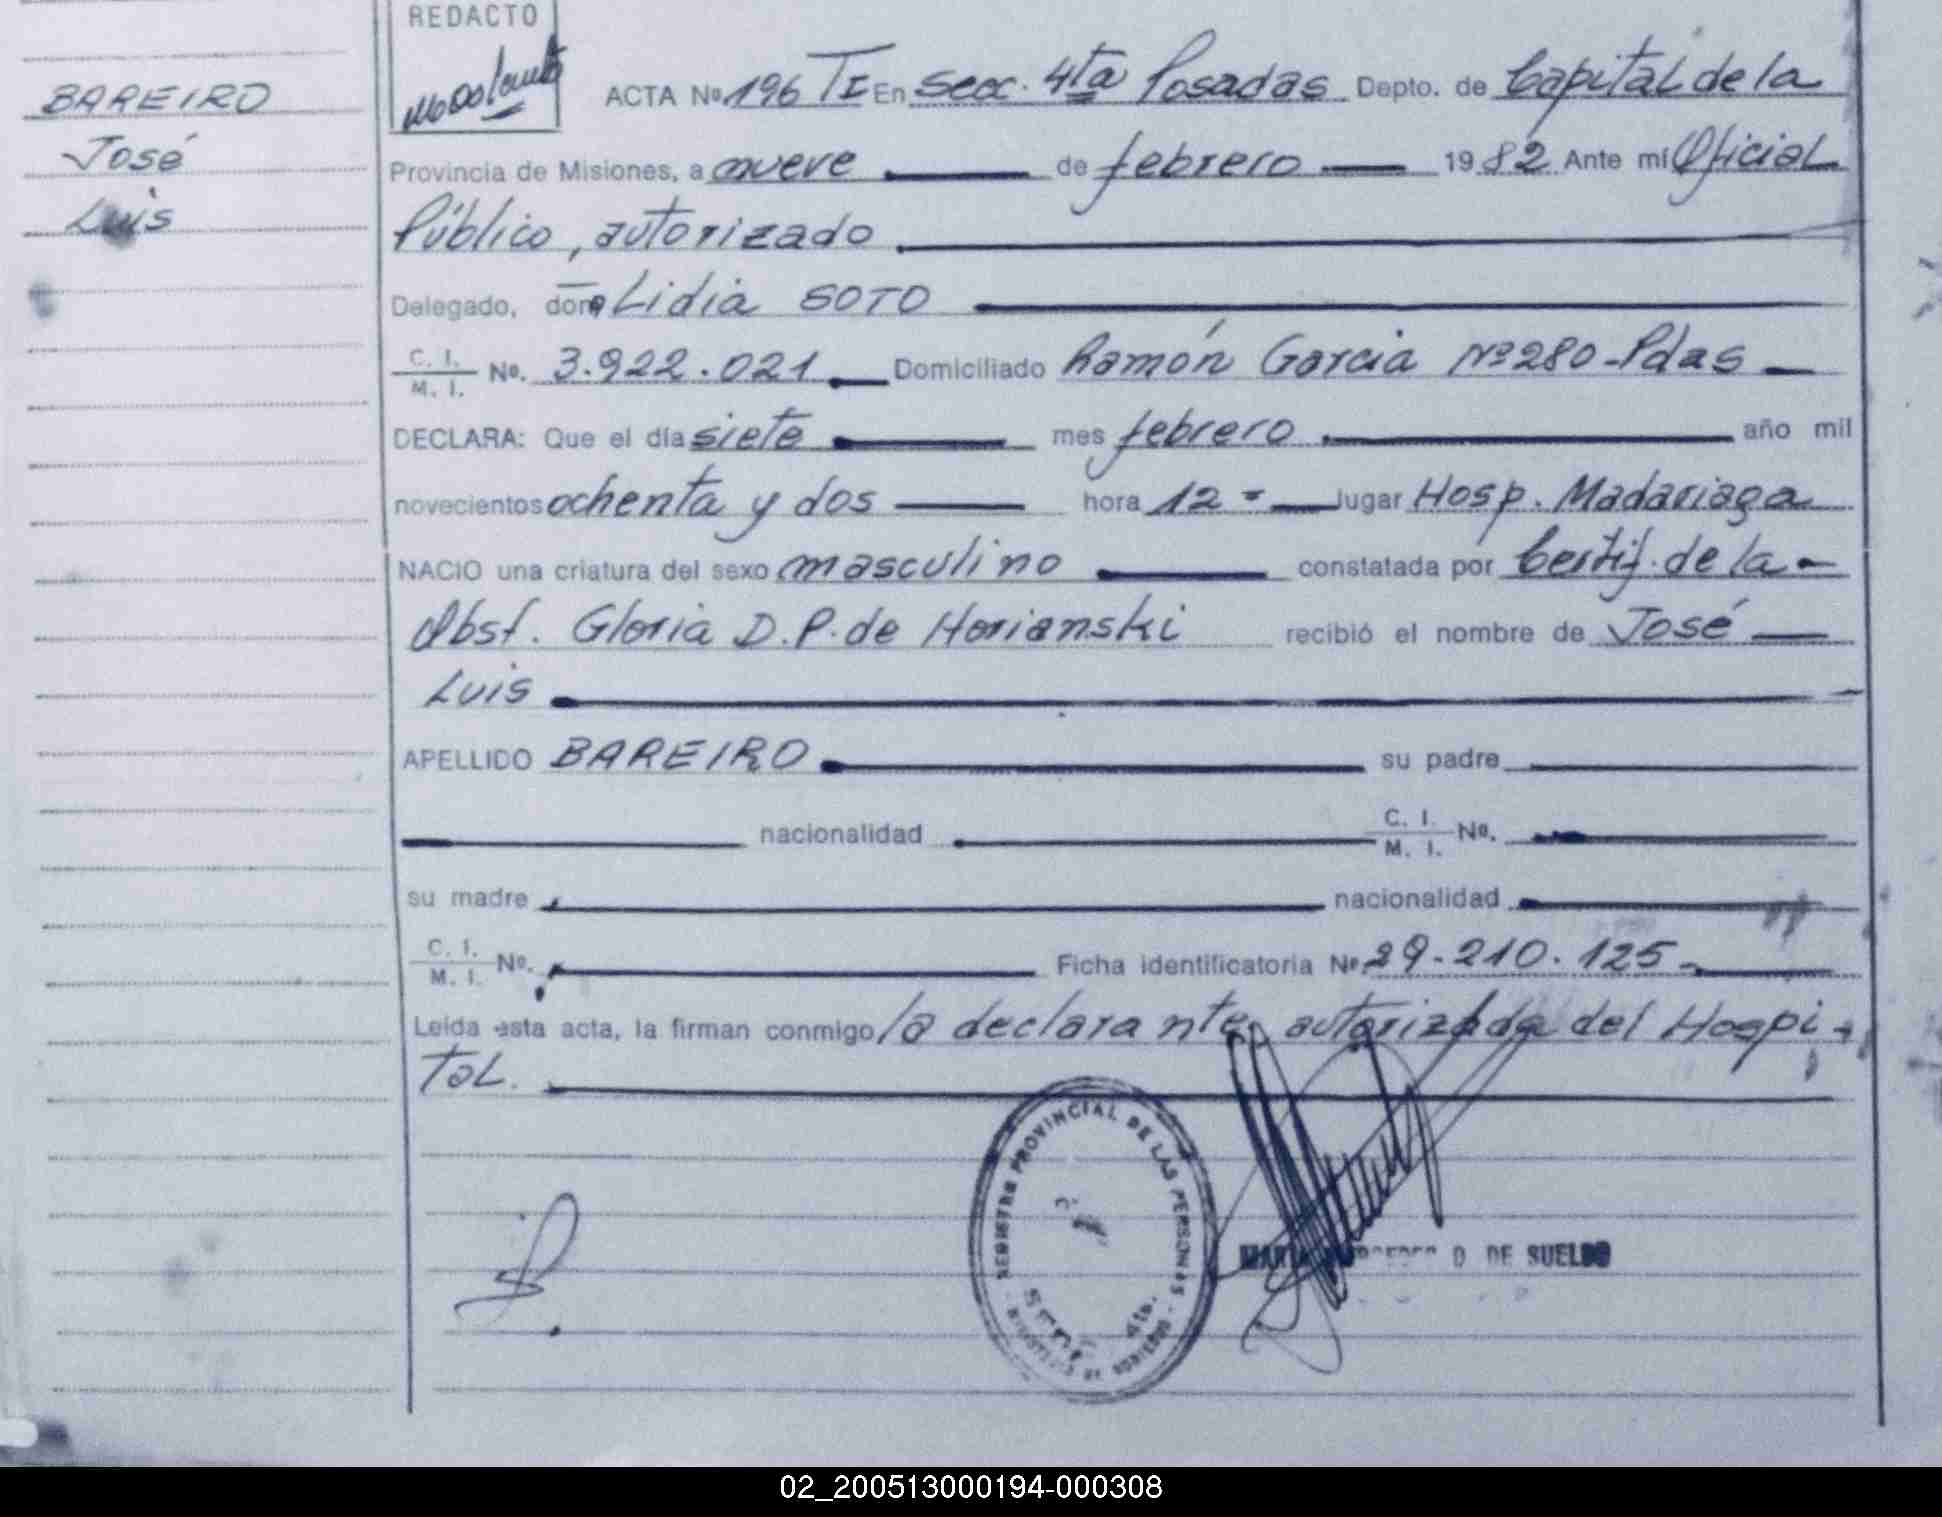 REDACTO
BAREIRO
José
Luis
ACTA Nº 196 TI En Secc. 4ta Posadas Depto. de Capital de la
Provincia de Misiones, a nueve de febrero 1982 Ante mí Oficial
Público, autorizado
Delegado, doña Lidia SOTO
C. I.
M. I. Nº. 3.922.021 Domiciliado Ramón Garcia Nº 280-Pdas
DECLARA: Que el día siete mes febrero año mil
novecientos ochenta y dos hora 12 = lugar Hosp. Madariaga
NACIO una criatura del sexo masculino constatada por Certif. de la
Obst. Gloria D. P. de Horianski recibió el nombre de José
Luis
APELLIDO BAREIRO su padre
nacionalidad C. I.
M. I. Nº.
su madre nacionalidad
C. I.
M. I. Nº. Ficha identificatoria Nº 29.210.125
Leída esta acta, la firman conmigo la declarante, autorizada del Hospi-
tal.
REGISTRO PROVINCIAL DE LAS PERSONAS
4ta.
D. DE SUELDO
02_200513000194-000308